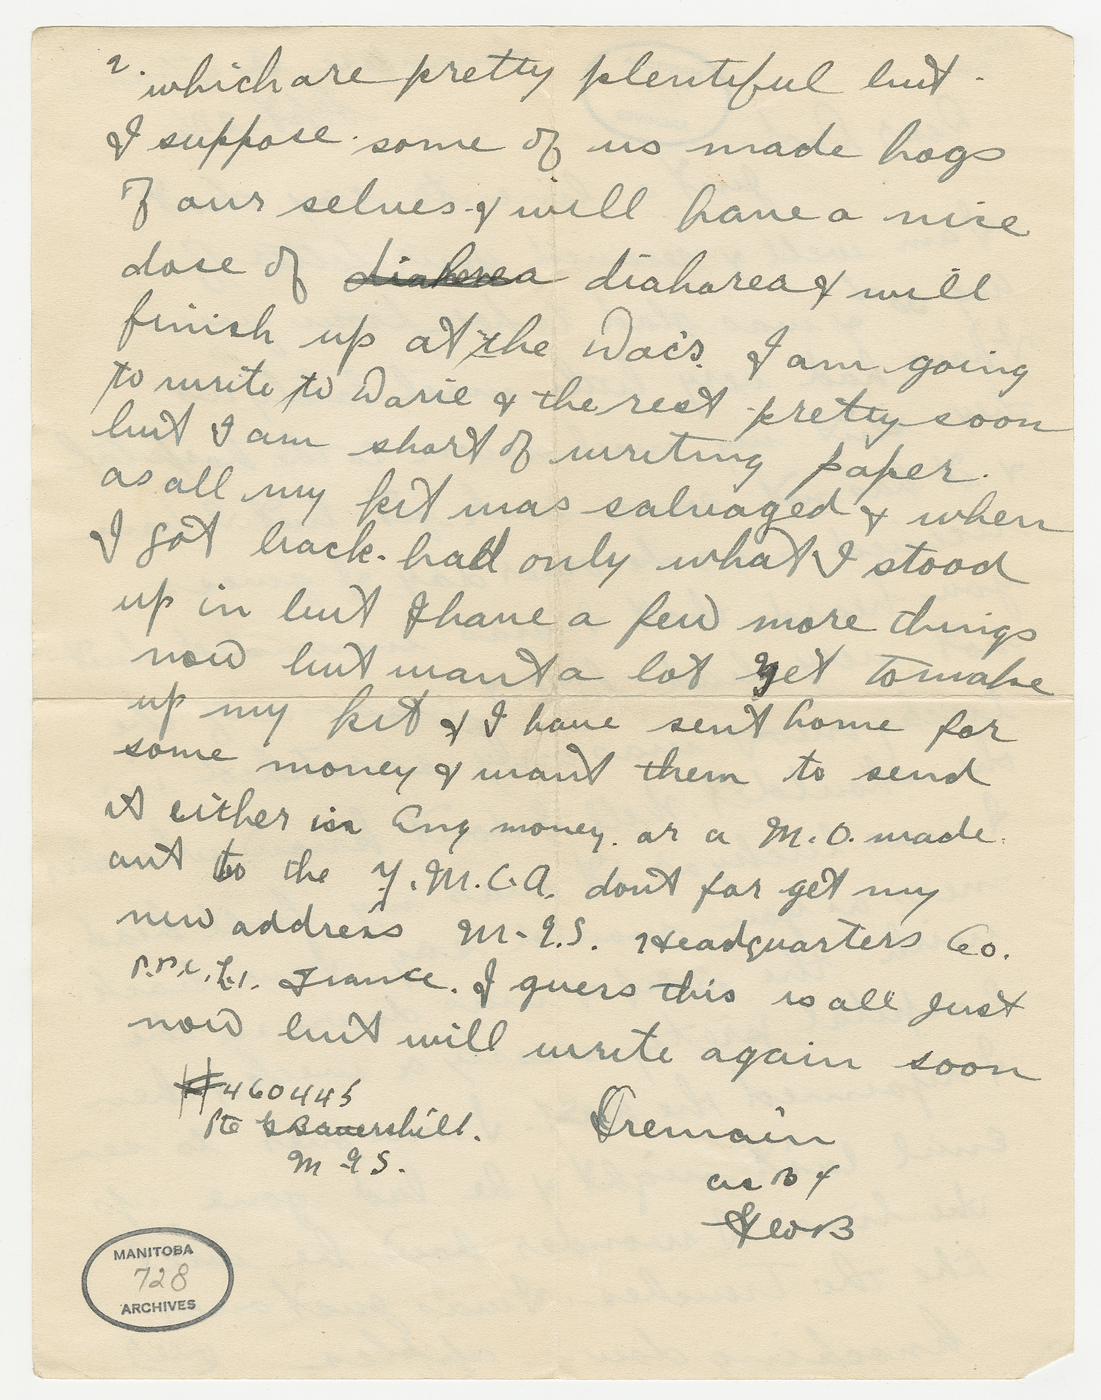 2. which are pretty plentiful but
I suppose some of us made hogs
of our selves & will have a nice
dose of diahorea & will
finish up at the Doc's. I am going
to write to Dorie & the rest pretty soon
but I am short of writing paper.
as all my kit was salvaged & when
I got back. had only what I stood
up in but I have a few more things
now but want a lot yet to make
up my kit & I have sent home for
some money & want them to send
it either in Eng money. or a M.O. made.
out to the Y.M.C.A. dont for get my
new address M.G.S. Headquarters Co.
France. I guess this is all Just
now but will write again soon
#460445
Pte G Battershill.
M G S.
I remain
as B 4
Geo B
MANITOBA
728
ARCHIVES